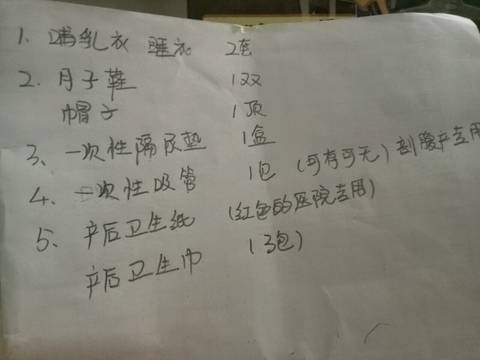 1、哺乳衣 睡衣 2套
2、月子鞋 1双
帽子 1顶
3、一次性隔尿垫 1盒
4、一次性吸管 1包 (可有可无) 剖腹产专用
5、产后卫生纸 (红色的医院专用)
产后卫生巾 (3包)